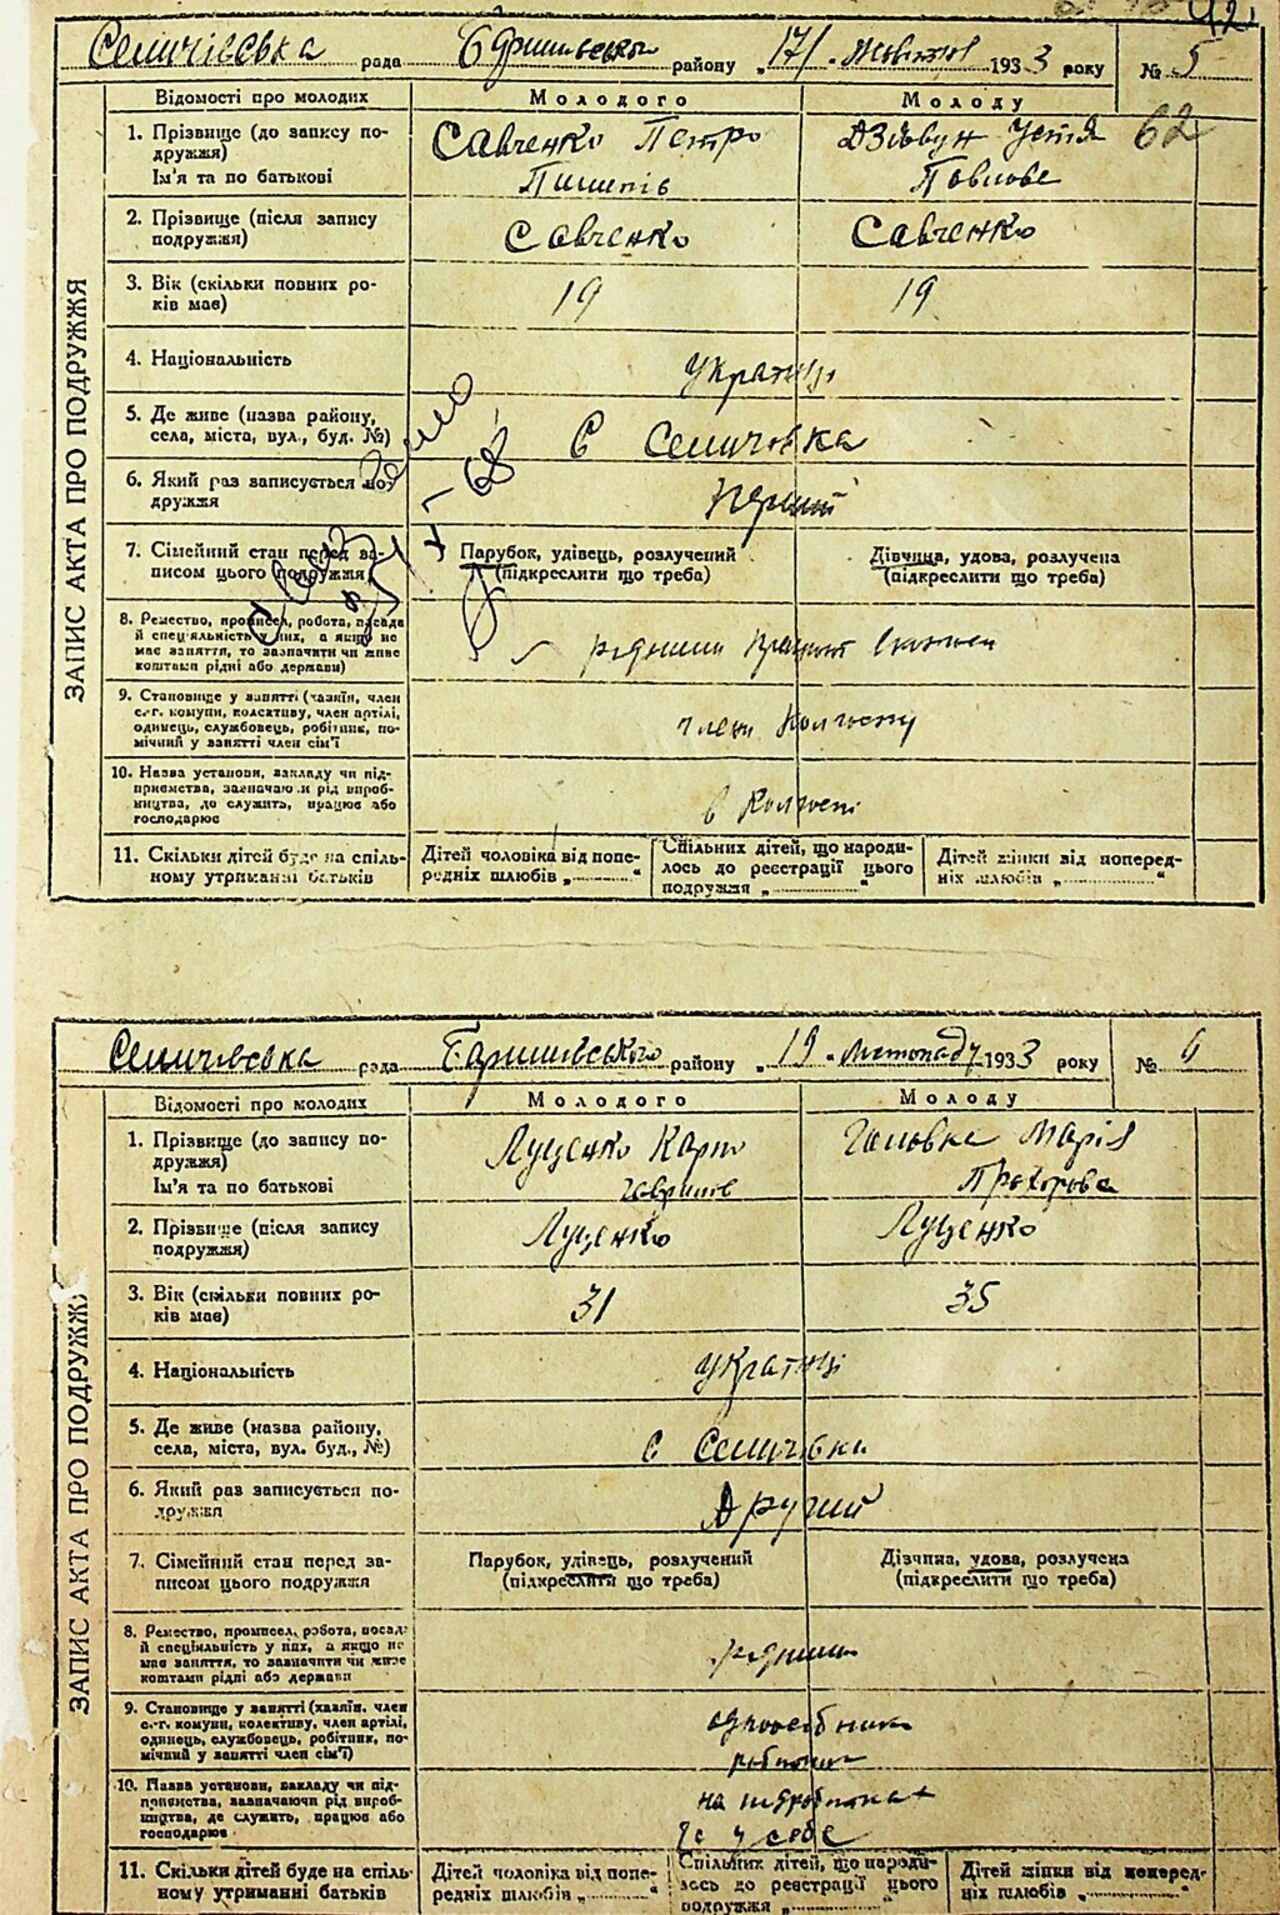 42
Семичівська рада Баришівського району „17/" жовтня 1933 року № 5
Відомості про молодих Молодого Молоду
1. Прізвище (до запису по-
дружжя)
Ім'я та по батькові
Савченко Петро
Пилипів
Дзівун Устя
Павлова
62
2. Прізвище (після запису
подружжя)
Савченко Савченко
3. Вік (скільки повних ро-
ків має)
19 19
4. Національність
українці
5. Де живе (назва району,
села, міста, вул., буд. №)
с Семичовка
6. Який раз записується по-
дружжя
перший
7. Сімейний стан перед за-
писом цього подружжя
Парубок, удівець, розлучений
(підкреслити що треба)
Дівчина, удова, розлучена
(підкреслити що треба)
8. Ремество, промисел, робота, посада
й спеціяльність у них, а якщо не
має заняття, то зазначити чи живе
коштами рідні або держави)
9. Становище у занятті (хазяїн, член
с.-г. комуни, колективу, член артілі,
одинець, службовець, робітник, по-
мічний у занятті член сім'ї
члени колгоспу
10. Назва установи, закладу чи під-
приємства, зазначаючи рід вироб-
ництва, де служить, працює або
господарює
в колгоспі
11. Скільки дітей буде на спіль-
ному утриманні батьків
Дітей чоловіка від попе-
редніх шлюбів „ "
Спільних дітей, що народи-
лось до реєстрації цього
подружжя „ "
Дітей жінки від поперед-
ніх шлюбів „ "
ЗАПИС АКТА ПРО ПОДРУЖЖЯ
Семичівська рада Баришівського району „19" листопаду 1933 року № 6
Відомості про молодих Молодого Молоду
1. Прізвище (до запису по-
дружжя)
Ім'я та по батькові
Луценко Карпо
Гаврилів
Головка Марія
Прохорова
2. Прізвище (після запису
подружжя)
Луценко Луценко
3. Вік (скільки повних ро-
ків має)
31 35
4. Національність
українці
5. Де живе (назва району,
села, міста, вул. буд., №)
с Семичівки
6. Який раз записується по-
дружжя
другий
7. Сімейний стан перед за-
писом цього подружжя
Парубок, удівець, розлучений
(підкреслити що треба)
Дівчина, удова, розлучена
(підкреслити що треба)
8. Ремество, промисел, робота, посада
й спеціяльність у них, а якщо не
має заняття, то зазначити чи живе
коштами рідні або держави
9. Становище у занятті (хазяїн, член
с.-г. комуни, колективу, член артілі,
одинець, службовець, робітник, по-
мічний у занятті член сім'ї)
одноосібники
10. Назва установи, закладу чи під-
приємства, зазначаючи рід вироб-
ництва, де служить, працює або
господарює
у себе
11. Скільки дітей буде на спіль-
ному утриманні батьків
Дітей чоловіка від попе-
редніх шлюбів „ "
Спільних дітей, що народи-
лось до реєстрації цього
подружжя „ "
Дітей жінки від поперед-
ніх шлюбів „ "
ЗАПИС АКТА ПРО ПОДРУЖЖЯ